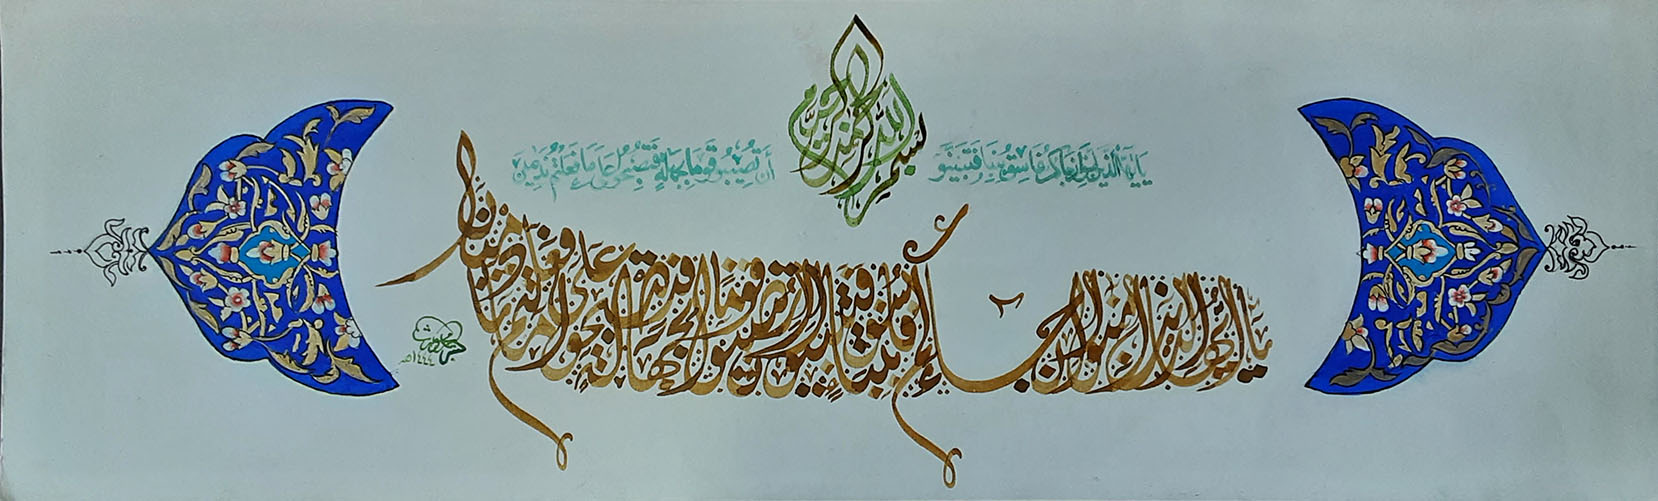 بسم الله الرحمن الرحيم
يايها الذين امنوا ان جاءكم فاسق بنبا فتبينوا
ان تصيبوا قوما بجهالة فتصبحوا على ما فعلتم ندمين
يا أيها الذين امنوا ان جاءكم فاسق بنبإ فتبينوا ان تصيبوا قوما بجهالة فتصبحوا على ما فعلتم نادمين
١٤٤٤هـ